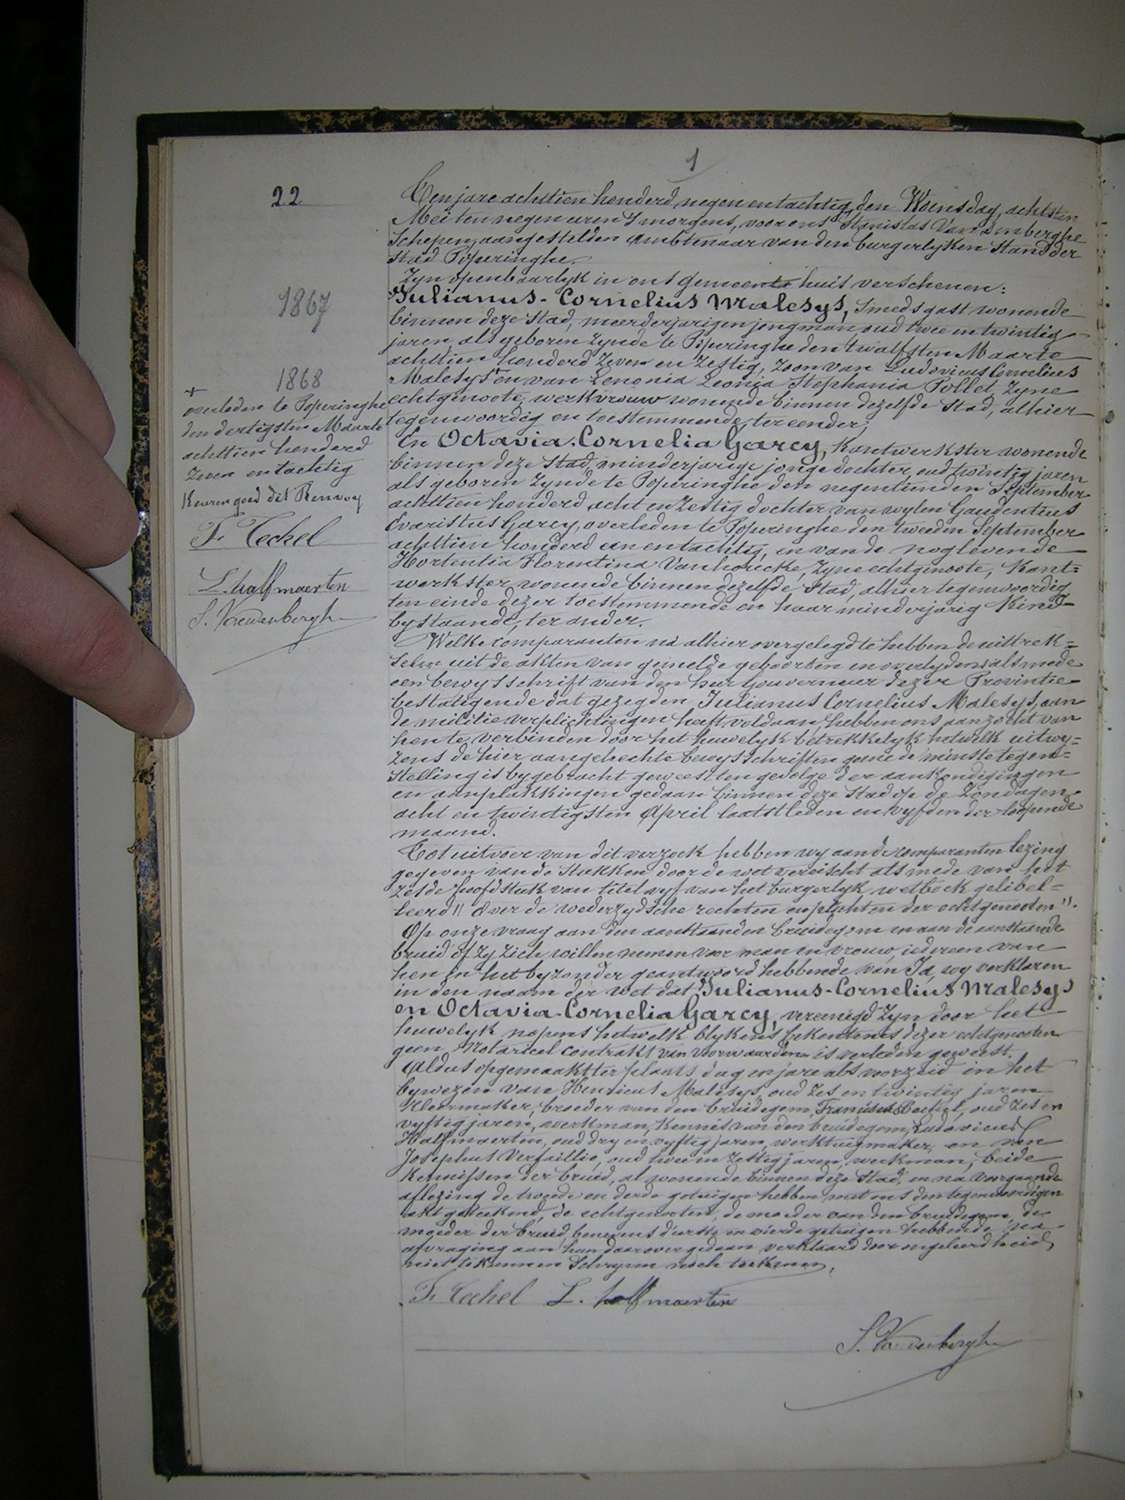 1
22
Een jare achttien honderd negen en tachtig, den Woensdag, achtsten
Mei ten negen uren 's morgens, voor ons Stanislas Vandenberghe
Schepen, aangestelden ambtenaar van den burgerlyken Stand der
stad Poperinghe.
Zyn openbaarlyk in ons gemeente huis verschenen:
Julianus-Cornelius Malesys, smedsgast wonende
binnen deze stad, meerderjarigen jongman oud twee en twintig
jaren, als geboren zynde te Poperinghe den twaalfsten Maarte
achttien honderd zeven en zestig, zoon van Ludovicus Cornelius
Malesys + en van Zenonia Leonia Stephania Pollet, zyne
echtgenoote, werkvrouw wonende binnen dezelfde stad, alhier
tegenwoordig en toestemmende, ter eender;
En Octavia-Cornelia Garcy, Kantwerkster wonende
binnen deze stad, minderjarige jonge dochter, oud twintig jaren
als geboren zynde te Poperinghe den negentienden September
achttien honderd acht en zestig dochter van wylen Gaudentius
Evaristus Garcy, overleden te Poperinghe den tweeden September
achttien honderd een en tachtig, en van de noglevende
Hortentia Florentina Vanhoucke, zyne echtgenoote, Kant=
werkster wonende binnen dezelfde stad, alhier tegenwoordig
ten einde dezer toestemmende en haar minderjarig Kind
bystaande, ter ander.
Welke comparanten na alhier overgelegd te hebben de uittrek=
selen uit de akten van gemelde geboorten en overlydens alsmede
een bewysschrift van den heer Gouverneur dezer Provintie
bestatigende dat gezegden Julianus Cornelius Malesys, aan
de militie verplichtingen heeft voldaan hebben ons aanzocht van
hen te verbinden door het huwelyk betrekkelyk hetwelk uitwy=
zens de hier aangehechte bewysschriften geene de minste tegen=
stelling is bygebracht geweest ten gevolge der aankondigingen
en aanplakkingen gedaan binnen deze stad op de Zondagen
acht en twintigsten April laatstleden en vyfden der loopende
maand.
Tot uitvoer van dit verzoek hebben wy aan de comparanten lezing
gegeven van de stukken door de wet vereischt als mede van het
zesde hoofdstuk van titel vyf van het burgerlyk wetboek gelibel=
leerd " Over de wederzydsche rechten en plichten der echtgenooten ".
Op onze vraag aan den aanstaanden bruidegom en aan de aanstaande
bruid of zy zich willen nemen voor man en vrouw, iedereen van
hen in het byzonder geantwoord hebbende van Ja, wy verklaren
in den naam der wet dat Julianus-Cornelius Malesys
en Octavia-Cornelia Garcy, vereenigd zyn door het
huwelyk nopens hetwelk blykens bekentenis dezer echtgenooten
geen Notarieel contrakt van voorwaarden is verleden geweest.
Aldus opgemaakt ter plaats, dag en jare als voorzeid in het
bywezen van Henricus Malesys, oud zes en twintig jaren
Kleermaker, broeder van den bruidegom, Franciscus Bechel, oud zes en
vyftig jaren, werkman, kennis van den bruidegom, Ludovicus
Halfmaerten, oud dry en vyftig jaren, werktuigmaker, en van
Josephus Verfaillie, oud twee en zestig jaren, werkman, beide
Kennissen der bruid, al wonende binnen deze stad, en na voorgaande
aflezing de tweede en derde getuigen hebben met ons den tegenwoordigen
akt geteekend, de echtgenooten, de moeder van den bruidegom, de
moeder der bruid benevens d'eerste en vierde getuigen hebbende na
afvraging aan hen daarover gedaan verklaard door ongeleerdheid
niet te kunnen schryven noch teekenen.
F. Bechel L. halfmaerten
S. Vandenberghe
1867
1868
+
overleden te Poperinghe
den dertigsten Maarte
achttien honderd
zeven en tachtig
Keuren goed dit Renvoy
F. Bechel
L. halfmaerten
S. Vandenberghe